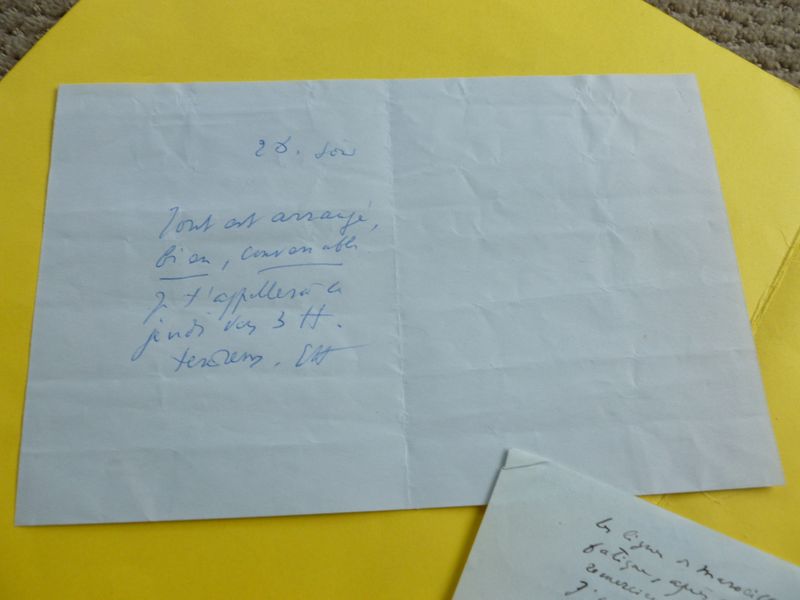 soir
Tout est arrangé,
bien, convenable.
Je t'appellerai
jeudi vers 3 H.
tendress. EH
les lignes
fatigue, après
remercie
J'